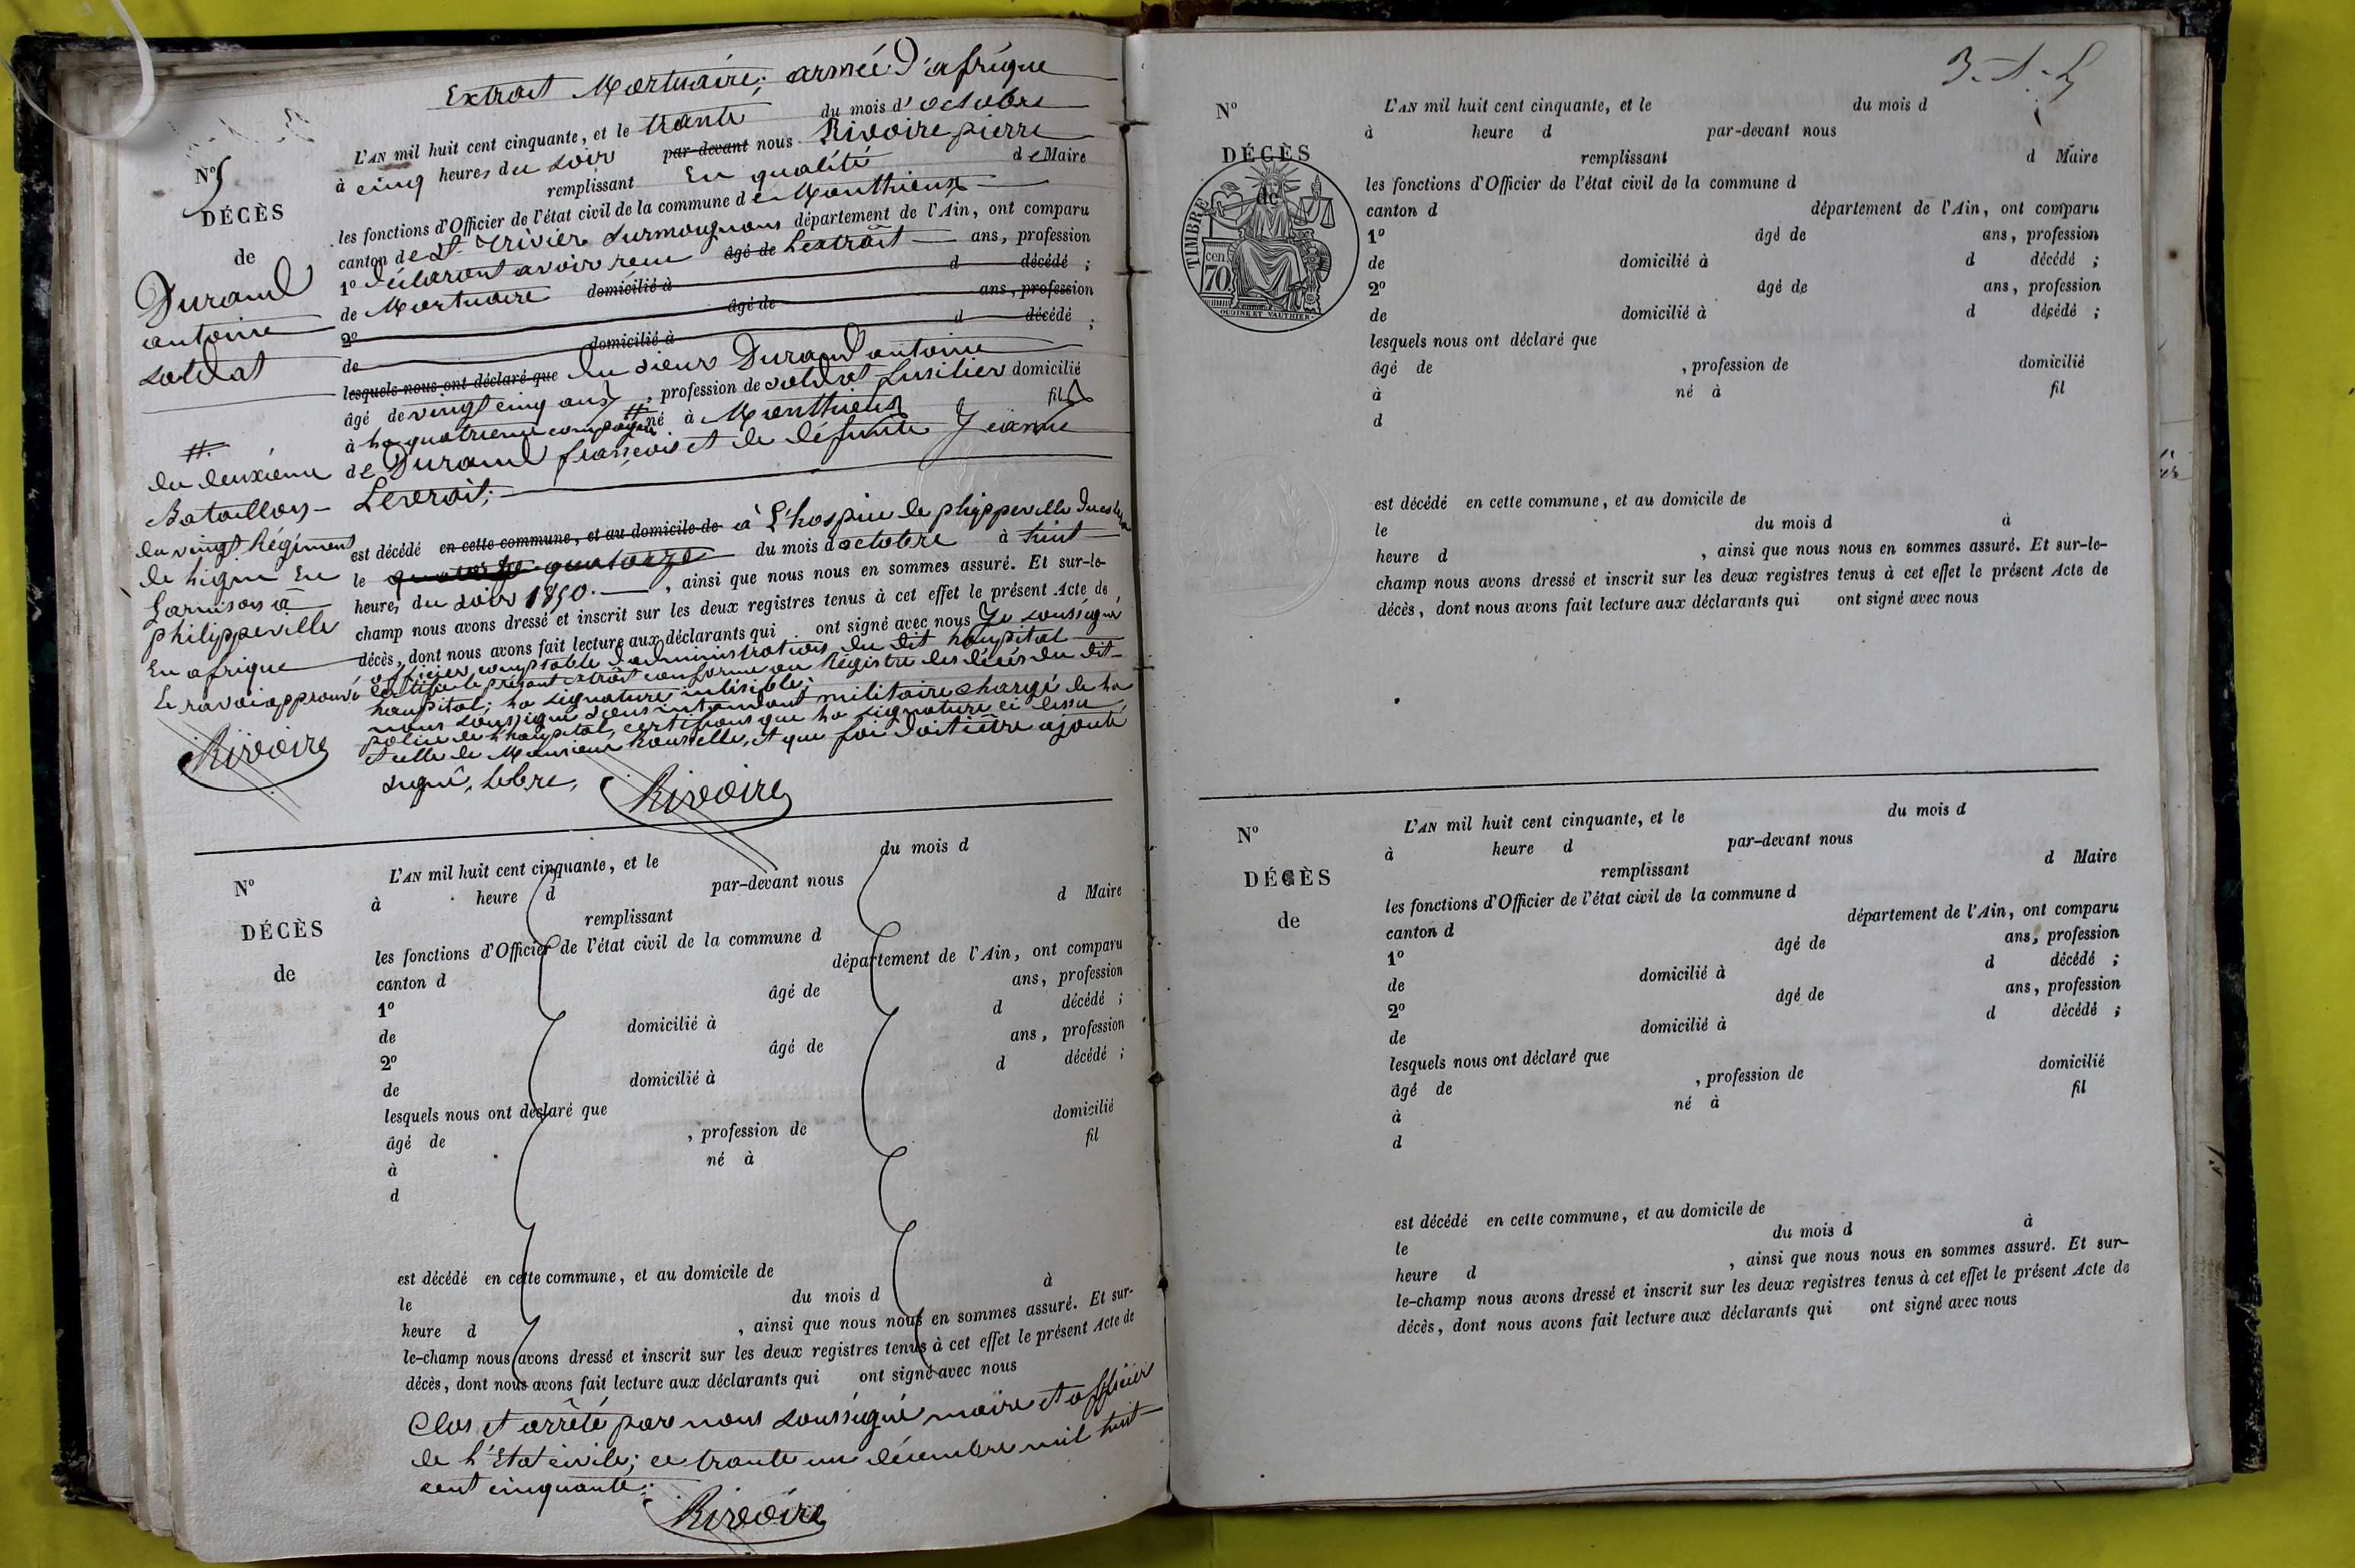 Extrait Mortuaire, armée d'afrique
L'AN mil huit cent cinquante, et le trante du mois d'octobre
à cinq heures du soir par-devant nous Rivoire pierre
remplissant En qualité de Maire
les fonctions d'Officier de l'état civil de la commune de Monthieux
canton de St Trivier surmoignans département de l'Ain, ont comparu
1º déclaront avoir recu âgé de L'extrait ans, profession
de Mortuaire domicilié à d décédé ;
2º âgé de ans, profession
de domicilié à d décédé ;
lesquels nous ont déclaré que du sieur Durand antoine
âgé de vingt cinq ans, profession de soldat fusilier domicilié
à la quatrieme compagnie # né à Monthieux fils
de Durand françois et de défunte Jeanne
est décédé en cette commune, et au domicile de à L'hospice de phippeville
le quatorze du mois d octobre à huit
heures du soir 1850. , ainsi que nous nous en sommes assuré. Et sur-le-
champ nous avons dressé et inscrit sur les deux registres tenus à cet effet le présent Acte de
décès, dont nous avons fait lecture aux déclarants qui ont signé avec nous Je soussigné
officier comptable d'administration du dit haupital
certifie le présant extrait conforme au Régistre des décés du dit
haupital; la signature inlisible;
nous soussigné sous intandant militaire chargé de la
police de l'haupital, certifions que la signature ci dessu
et celle de Monsieur et que foi doit être ajouté
signé,
Rivoire
Nº 5
DÉCÈS
de
Durand
antoine
soldat
#
du deuxième
Bataillon
du vingt Régiment
de ligne En
Garnison à
philippeville
En afrique
Rivoire
Nº
DÉCÈS
de
L'AN mil huit cent cinquante, et le du mois d
à heure d par-devant nous
remplissant d Maire
les fonctions d'Officier de l'état civil de la commune d
canton d département de l'Ain, ont comparu
1º âgé de ans, profession
de domicilié à d décédé ;
2º âgé de ans, profession
de domicilié à d décédé ;
lesquels nous ont déclaré que
âgé de , profession de domicilié
à né à fil
d
est décédé en cette commune, et au domicile de
le du mois d à
heure d , ainsi que nous nous en sommes assuré. Et sur-
le-champ nous avons dressé et inscrit sur les deux registres tenus à cet effet le présent Acte de
décès, dont nous avons fait lecture aux déclarants qui ont signé avec nous
Clos et arrêté par nous soussigné maire et officier
de l'Etat civile; ce trante un décembre mil huit
cent cinquante.
Rivoire
Nº
DÉCÈS
de
TIMBRE
cen.
70.
OUDINE ET VAUTHIER
L'AN mil huit cent cinquante, et le du mois d
à heure d par-devant nous
remplissant d Maire
les fonctions d'Officier de l'état civil de la commune d
canton d département de l'Ain, ont comparu
1º âgé de ans, profession
de domicilié à d décédé ;
2º âgé de ans, profession
de domicilié à d décédé ;
lesquels nous ont déclaré que
âgé de , profession de domicilié
à né à fil
d
est décédé en cette commune, et au domicile de
le du mois d à
heure d , ainsi que nous nous en sommes assuré. Et sur-le-
champ nous avons dressé et inscrit sur les deux registres tenus à cet effet le présent Acte de
décès, dont nous avons fait lecture aux déclarants qui ont signé avec nous
Nº
DÉCÈS
de
L'AN mil huit cent cinquante, et le du mois d
à heure d par-devant nous
remplissant d Maire
les fonctions d'Officier de l'état civil de la commune d
canton d département de l'Ain, ont comparu
1º âgé de ans, profession
de domicilié à d décédé ;
2º âgé de ans, profession
de domicilié à d décédé ;
lesquels nous ont déclaré que
âgé de , profession de domicilié
à né à fil
d
est décédé en cette commune, et au domicile de
le du mois d à
heure d , ainsi que nous nous en sommes assuré. Et sur-
le-champ nous avons dressé et inscrit sur les deux registres tenus à cet effet le présent Acte de
décès, dont nous avons fait lecture aux déclarants qui ont signé avec nous